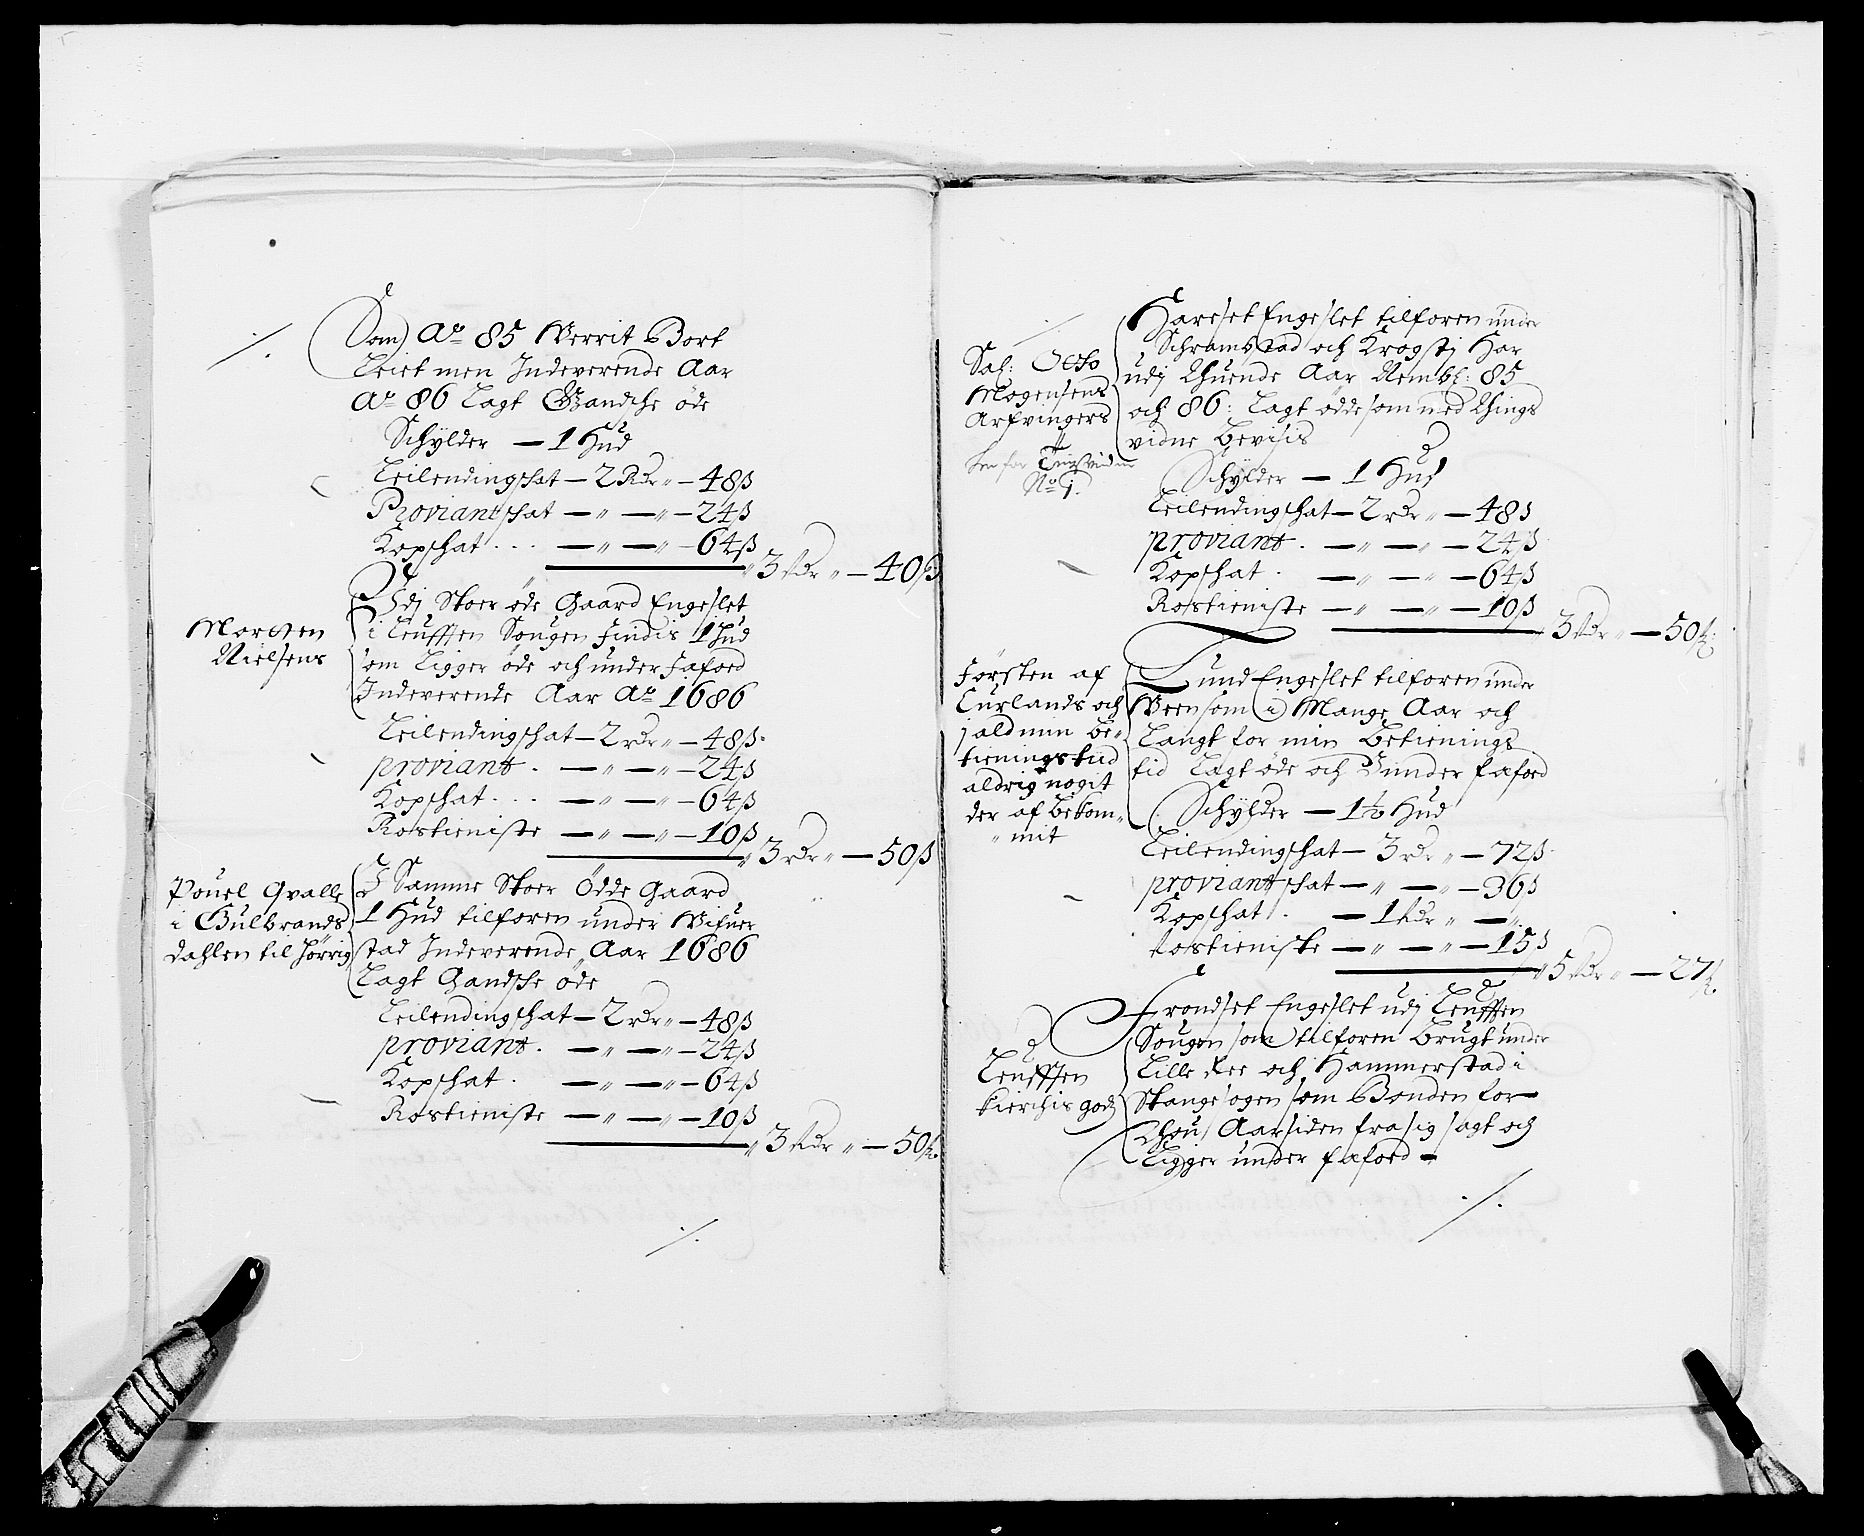 Som Ao 85 Verrit Bort
Leiet men Indeverende Aar
Ao 86 Lagt Gandsche øde
Schylder — 1 Hud
Leilendingschat — 2 Rdr „ — 48 ß
Proviantschat — „ — „ — 24 ß
Kopschat . . . — „ — „ — 64 ß
3 Rdr „ — 40 ß
Morten
Nielsens
Udj Stoer øde Gaard Engeslet
i Leufften Sougen Findis 1 Hud
som Ligger øde och under Faford
Indeverende Aar Ao 1686
Leilendingschat — 2 rdr „ — 48 ß
proviant . — „ — „ — 24 ß
Kopschat . . . — „ — „ — 64 ß
Rostieniste — „ — „ — 10 ß
3 rdr „ — 50 ß
Pouel Qvalle
i Gulbrands
dahlen til hørrig
I Samme Stoer Ödde Gaard
1 Hud tilforen under
stad Indeverende Aar 1686
Lagt Gandsche øde
Leilendingschat — 2 rdr „ — 48 ß
proviant . — „ — „ — 24 ß
Kopschat . — „ — „ — 64 ß
Rostieniste — „ — „ — 10 ß
3 Rdr „ — 50 ß
Sal: Otto
Mogensens
Arfvingers
Tingsvidne
No 1.
Harset Engeslet tilforen under
Schramstad och Krogstj Har
udj Aar 85
och 86: Lagt ødde som med Things
vidne Bevisis
Schylder — 1 Hud
Leilendingschat — 2 rdr „ — 48 ß
proviant . — „ — „ — 24 ß
Kopschat . — „ — „ — 64 ß
Rostieniste — „ — „ — 10 ß
3 Rdr „ — 50 ß
Førsten af
Curlands och
j ald min be-
tienings tiid
aldrig nogit
der af bekom-
mit
Lund Engeslet tilforen under
Veen som i Mange Aar och
Langt for min Betienings
tid Lagt øde och under faford
Schylder — 1½ Hud
Leilendingschat — 3 rdr „ — 72 ß
proviantschat — „ — „ — 36 ß
Kopschat . — 1 Rdr „ — „
Rostieniste — „ — „ — 15 ß
5 Rdr „ — 27 ß
Leufften
Kierchis godz
Frondset Engeslet udj Leufften
Sougen som tilforen Brugt under
Lille Ree och Hammerstad i
Stange sogen som Bonden for
Aar siden fra sig sagt och
Ligger under faford —